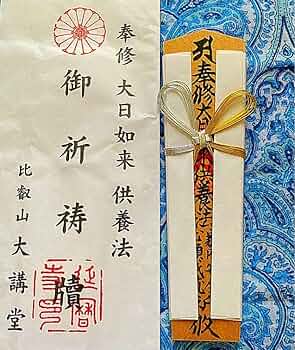 奉修 大日如来 供養法
御祈祷牘
比叡山 大講堂
延暦寺印
奉修大日
供養法
攸